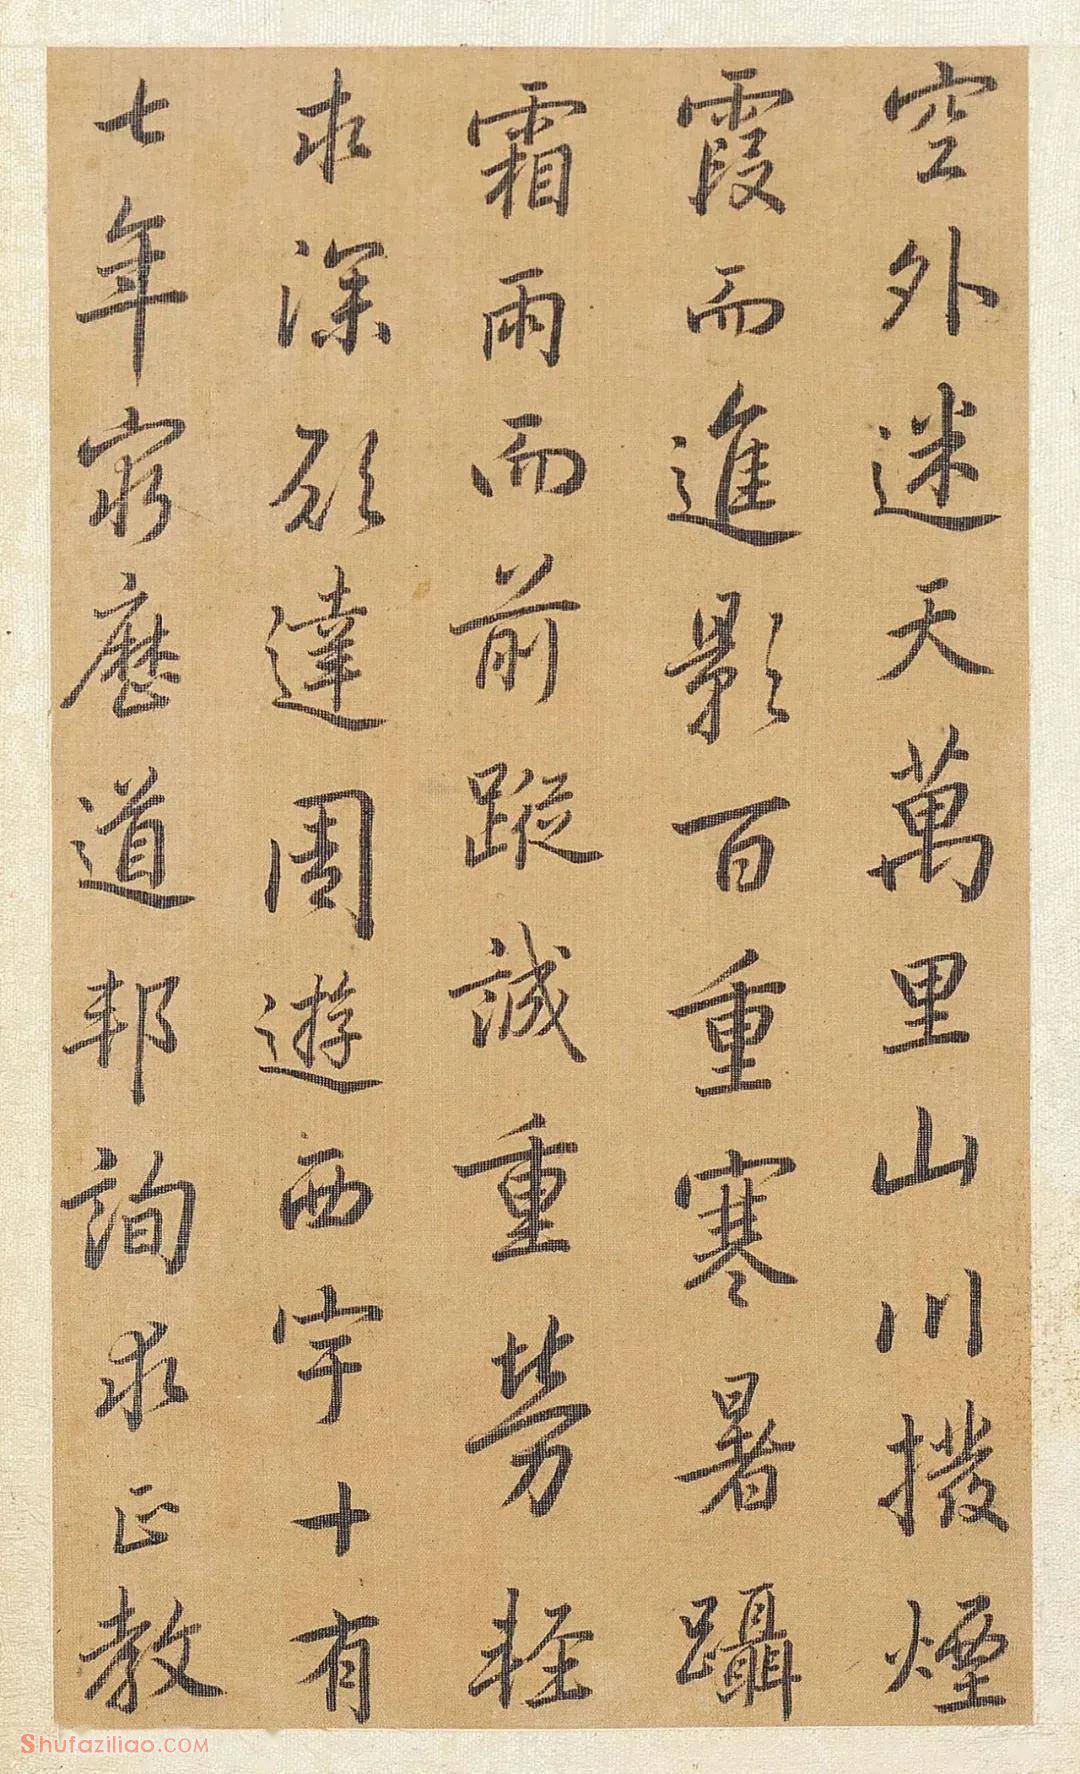 空外迷天萬里山川撥煙
霞而進影百重寒暑躡
霜雨而前蹤誠重勞輕
求深願達周遊西宇十有
七年窮歷道邦詢求正教
Shufaziliao.COM